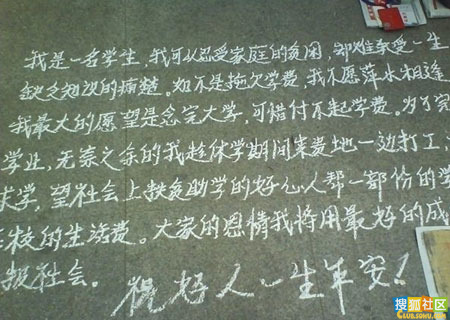 我是一名学生,我可以忍受家庭的贫困,却难承受一生
缺乏知识的痛楚。如不是拖欠学费,我不愿萍水相逢
我最大的愿望是念完大学,可惜付不起学费。为了完
学业,无奈之余的我趁休学期间来贵地一边打工,
求学,望社会上扶贫助学的好心人帮一部份的学
在校的生活费。大家的恩情我将用最好的成
报社会。
祝好人一生平安!
搜狐社区
CLUB.SOHU.COM